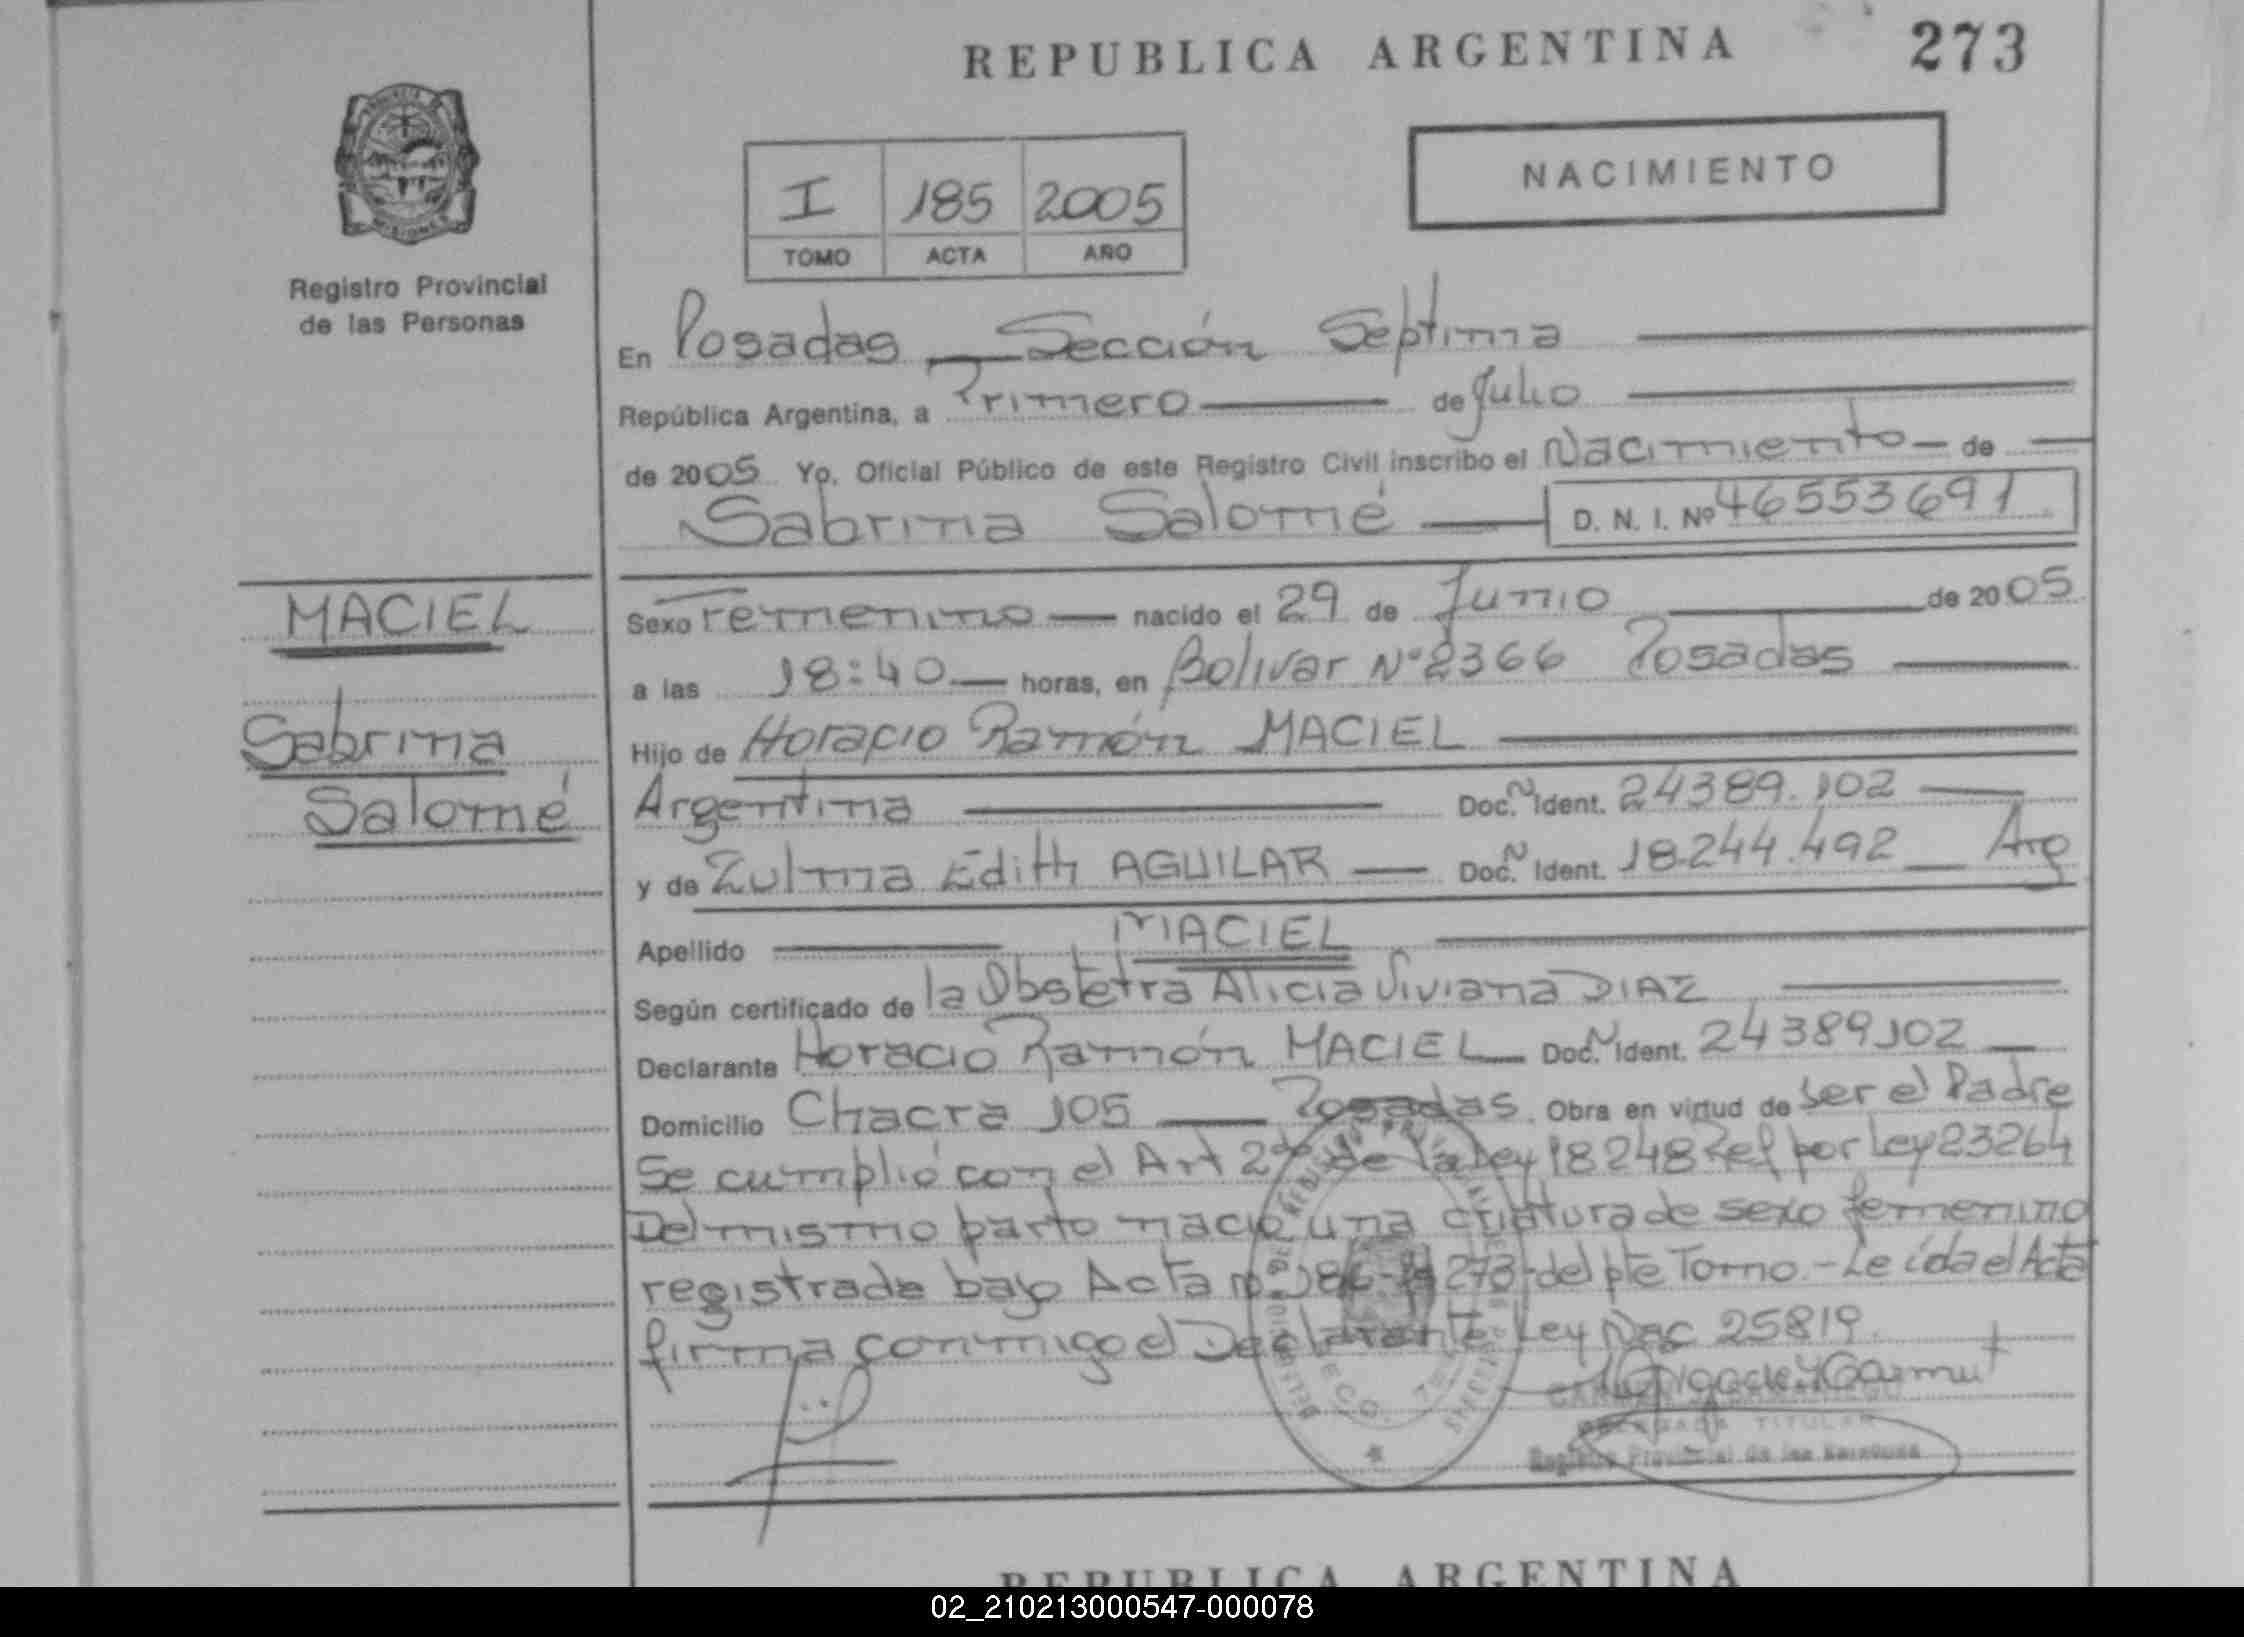 REPUBLICA ARGENTINA 273
Registro Provincial
de las Personas
I 185 2005
TOMO ACTA AÑO
NACIMIENTO
En Posadas — Sección Septima
República Argentina, a Primero de Julio
de 2005 Yo, Oficial Público de este Registro Civil inscribo el Nacimiento — de
Sabrina Salomé — D. N. I. Nº 46553691
MACIEL
Sabrina
Salomé
Sexo Femenino — nacido el 29 de Junio de 2005
a las 18:40 — horas, en Bolivar Nº 2366 Posadas
Hijo de Horacio Ramón MACIEL
Argentina Doc. Ident. 24389.102
y de Zulma Edith AGUILAR — Doc. Ident. 18.244.492 — Arg
Apellido MACIEL
Según certificado de la Obstetra Alicia Viviana DIAZ
Declarante Horacio Ramón MACIEL Doc. Ident. 24389102
Domicilio Chacra 105 — Posadas. Obra en virtud de ser el Padre
Se cumplió con el Art 2º de la Ley 18248 Ref por Ley 23264
Del mismo parto nacio una criatura de sexo femenino
registrada bajo Acta nº 186 273 del pte Tomo.- Leída el Acta
firma conmigo el Declarante Ley Nac 25819.
TITULAR
Registro Provincial de las Personas
REPUBLICA ARGENTINA
02_210213000547-000078